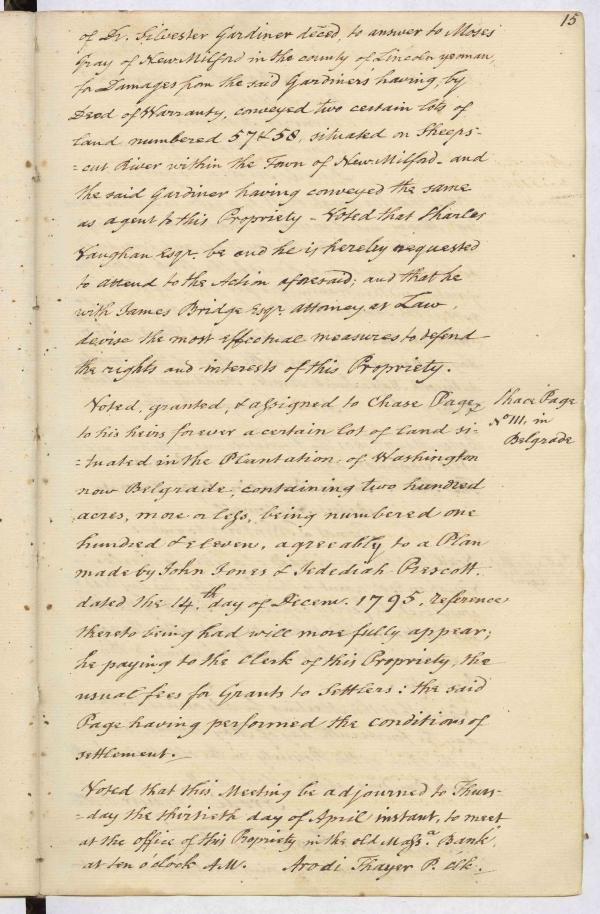 15
of Dr. Silvester Gardiner deced, to answer to Moses
Gray of New Milford in the county of Lincoln yeoman,
for Damages from the said Gardiners having, by
Deed of Warranty, conveyed two certain lots of
land numbered 57 & 58, situated on Sheeps-
=cut River within the Town of New Milford - and
the said Gardiner having conveyed the same
as agent to this Propriety - Voted that Charles
Vaughan Esqr. be and he is hereby requested
to attend to the Action aforesaid; and that he
with James Bridge Esqr. attorney at Law,
devise the most effectual measures to defend
the rights and interests of this Propriety.
Voted, granted, & assigned to Chase Page, &
to his heirs forever a certain lot of land si-
=tuated in the Plantation, of Washington
now Belgrade, containing two hundred
acres, more or less, being numbered one
hundred & eleven, agreeably to a Plan
made by John Jones & Jedediah Prescott.
dated the 14.th day of Decem. 1795, reference
thereto being had will more fully appear;
he paying to the Clerk of this Propriety, the
usual fees for Grants to Settlers: the said
Page having performed the conditions of
settlement.
Chace Page
No 111, in
Belgrade
Voted that this Meeting be adjourned to Thurs-
=day the thirtieth day of April instant, to meet
at the office of this Propriety in the old Massa. Bank,
at ten oClock AM. Arodi Thayer P. Clk.